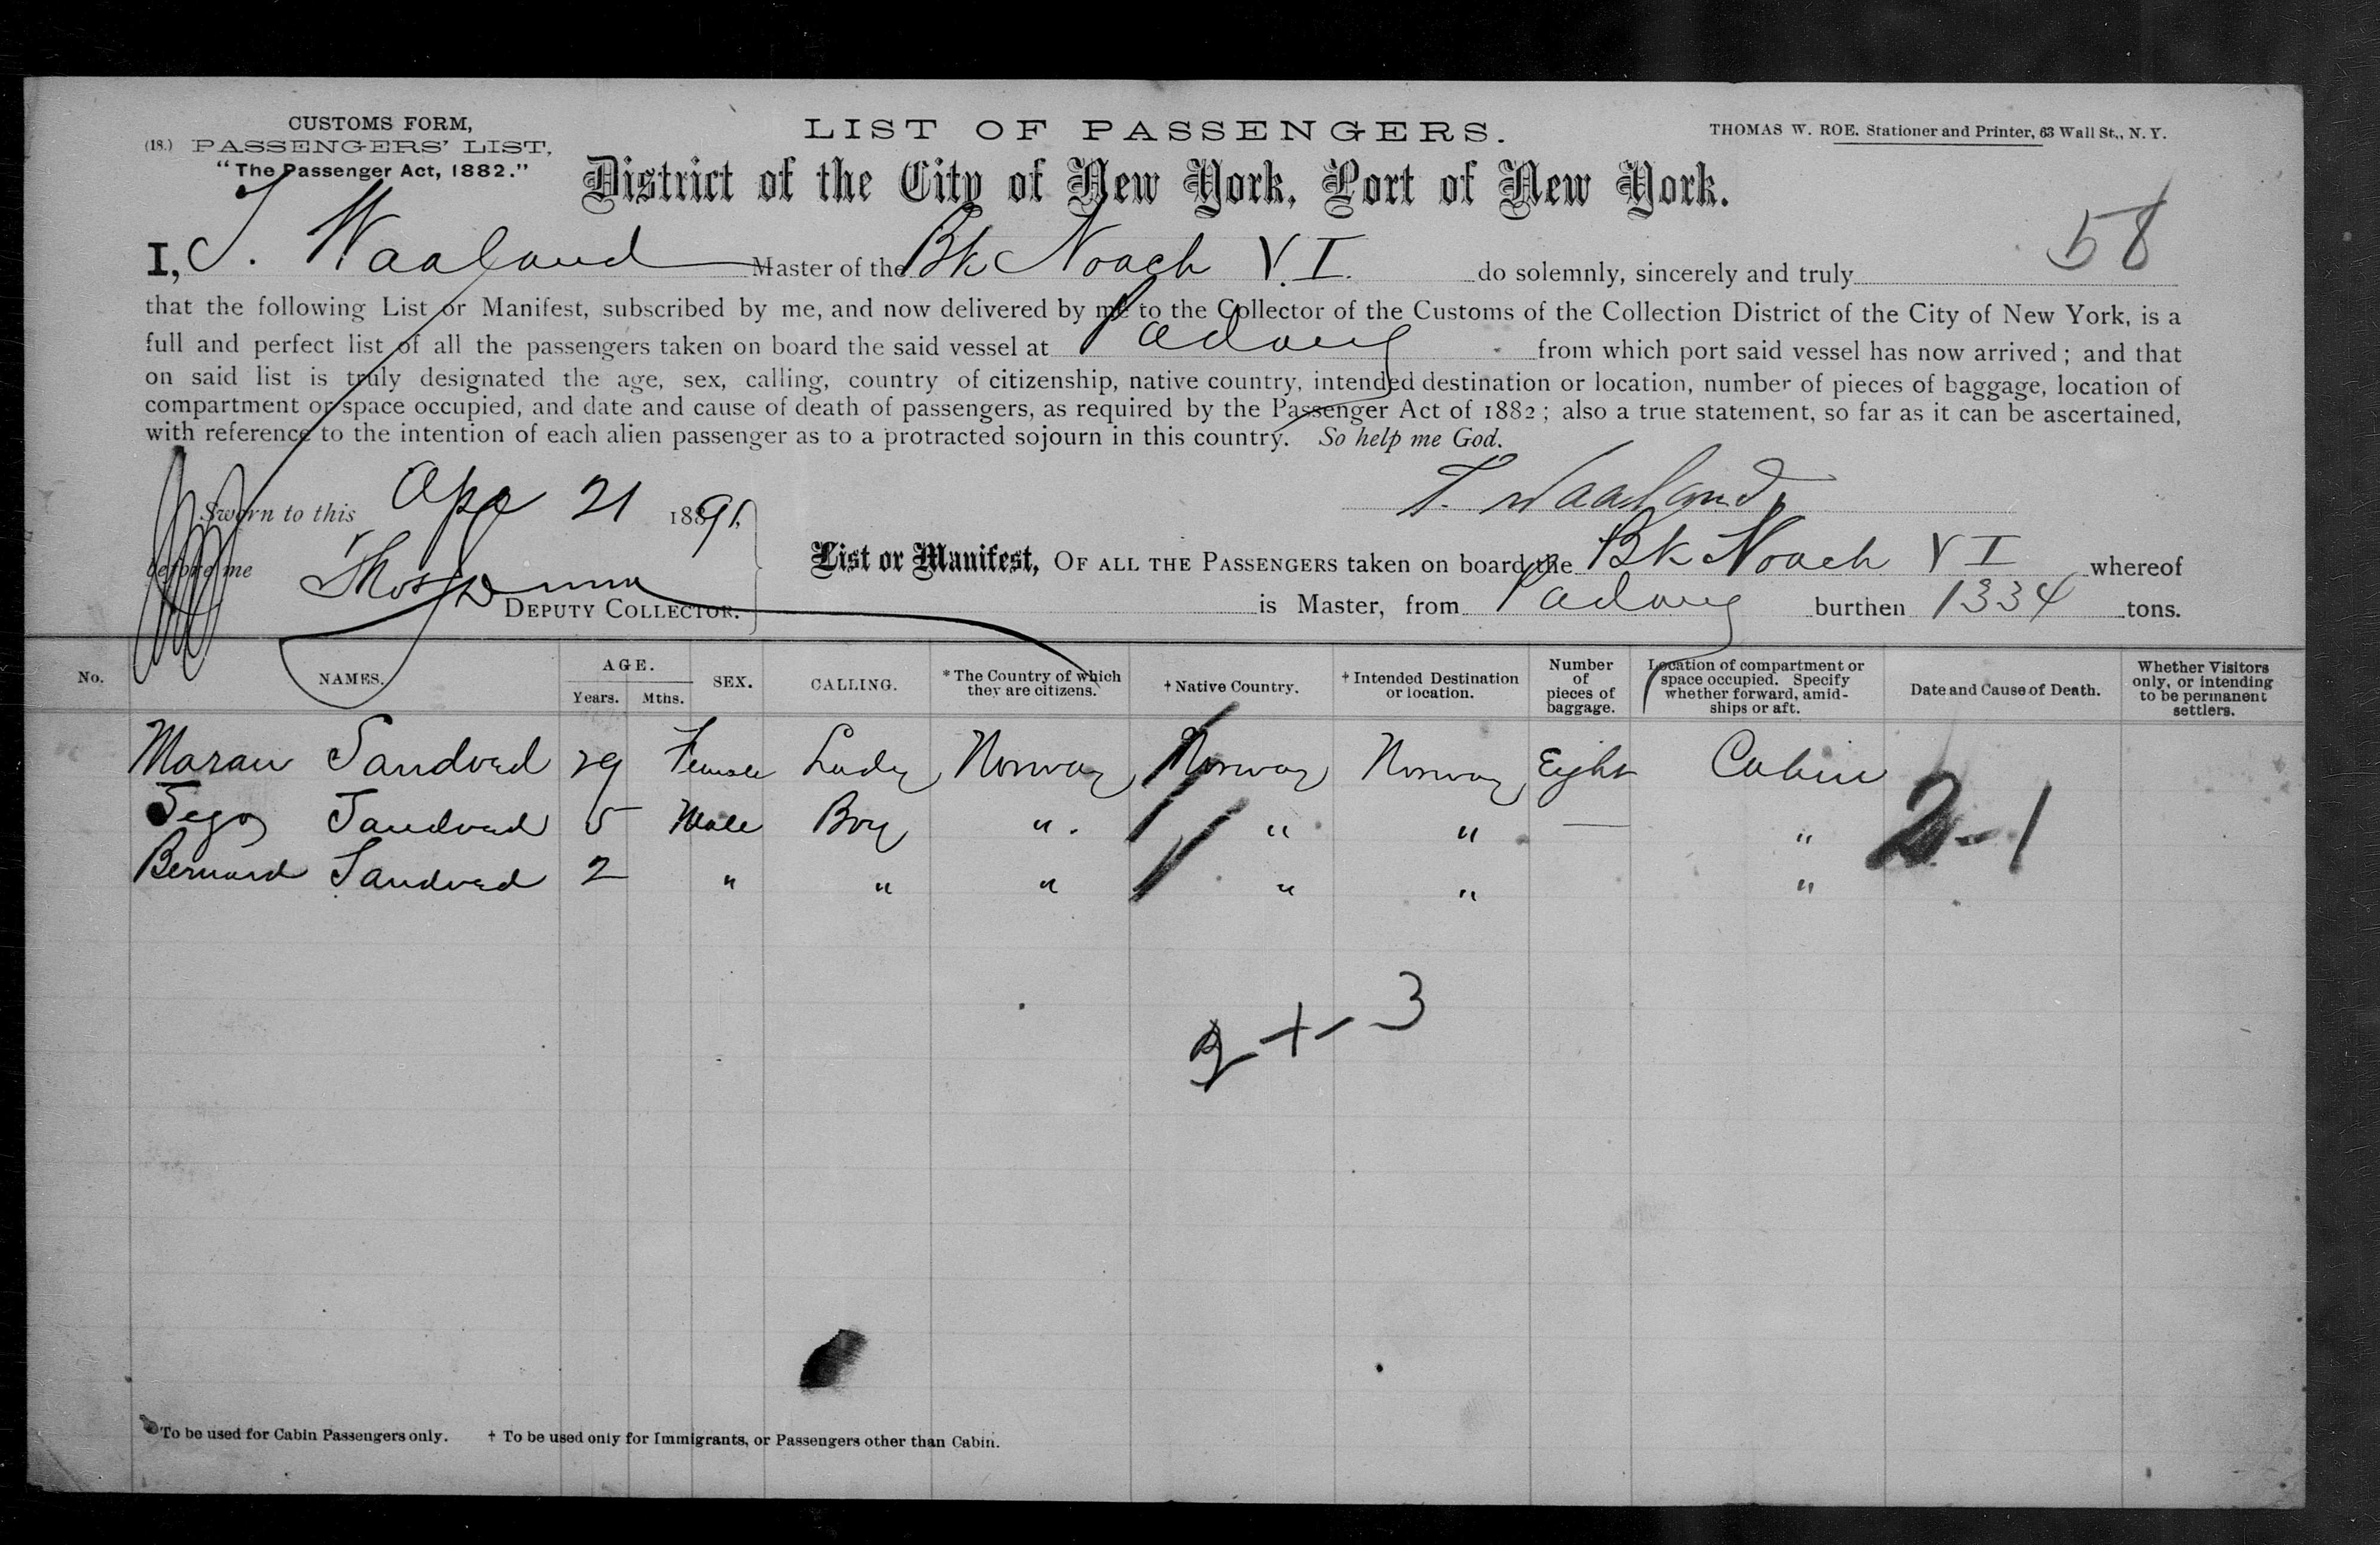 CUSTOMS FORM,
(18.) PASSENGERS' LIST,
"The Passenger Act, 1882."
LIST OF PASSENGERS.
THOMAS W. ROE. Stationer and Printer, 63 Wall St., N. Y.
District of the City of New York, Port of New York.
58
I, T. Waaland Master of the Bk Noach VI. do solemnly, sincerely and truly
that the following List or Manifest, subscribed by me, and now delivered by me to the Collector of the Customs of the Collection District of the City of New York, is a
full and perfect list of all the passengers taken on board the said vessel at Padang from which port said vessel has now arrived; and that
on said list is truly designated the age, sex, calling, country of citizenship, native country, intended destination or location, number of pieces of baggage, location of
compartment or space occupied, and date and cause of death of passengers, as required by the Passenger Act of 1882; also a true statement, so far as it can be ascertained,
with reference to the intention of each alien passenger as to a protracted sojourn in this country. So help me God.
T. Waaland
Sworn to this Apr 21 1891,
before me Thos Dunn
DEPUTY COLLECTOR.
List or Manifest, OF ALL THE PASSENGERS taken on board the Bk Noach VI whereof
is Master, from Padang burthen 1334 tons.
No. NAMES. AGE. Years. Mths. SEX. CALLING. * The Country of which they are citizens. † Native Country. † Intended Destination or location. Number of pieces of baggage. Location of compartment or space occupied. Specify whether forward, amidships or aft. Date and Cause of Death. Whether Visitors only, or intending to be permanent settlers.
Maran Sandved 29 Female Lady Norway Norway Norway Eight Cabin
Sandved 5 Male Boy " " " — "
Bernard Sandved 2 " " " " " "
2-1
2+-3
* To be used for Cabin Passengers only. † To be used only for Immigrants, or Passengers other than Cabin.